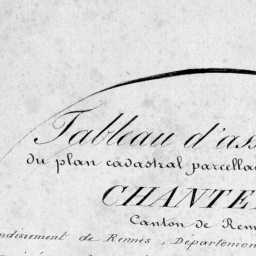 Tableau d'ass
du plan cadastral parcella
CHANTE
Canton de Ren
ndissement de Rennes, Départemen